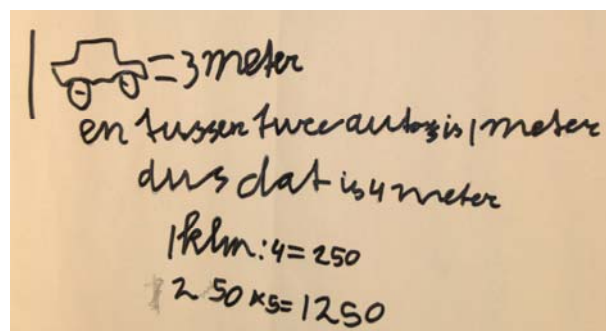 = 3 meter
en tussen twee autos is 1 meter
dus dat is 4 meter
1 klm : 4 = 250
250 x 5 = 1250